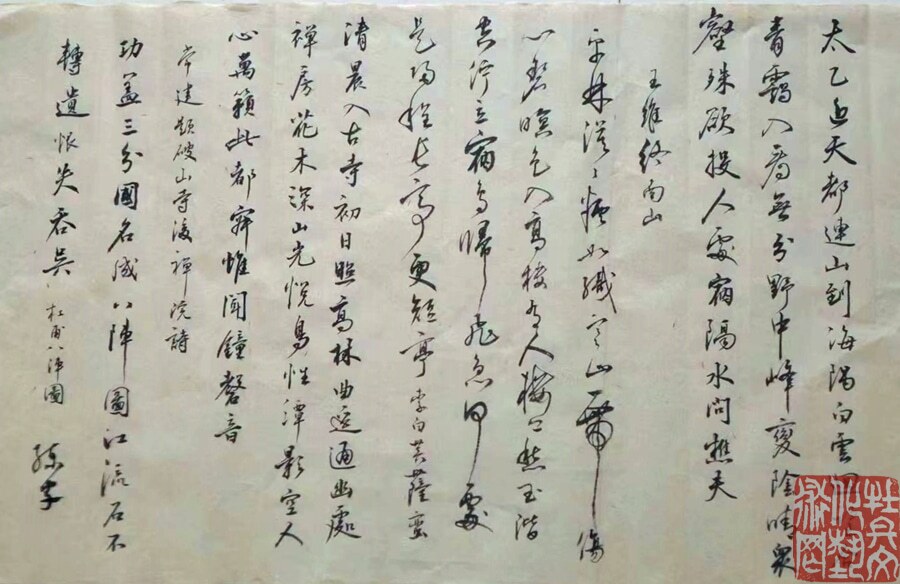 太乙近天都連山到海隅白雲回
青靄入看無分野中峰變陰晴衆
壑殊欲投人處宿隔水問樵夫
王維終南山
平林漠〻煙如織寒山帶傷
心碧暝色入高樓有人樓上愁玉階
空佇立宿鳥歸飛急何處
是歸程長亭更短亭 李白菩薩蠻
清晨入古寺初日照高林曲逕通幽處
禪房花木深山光悅鳥性潭影空人
心萬籟此都寂惟聞鐘磬音
常建題破山寺後禪院詩
功蓋三分國名成八陣圖江流石不
轉遺恨失吞吳 杜甫八陣圖